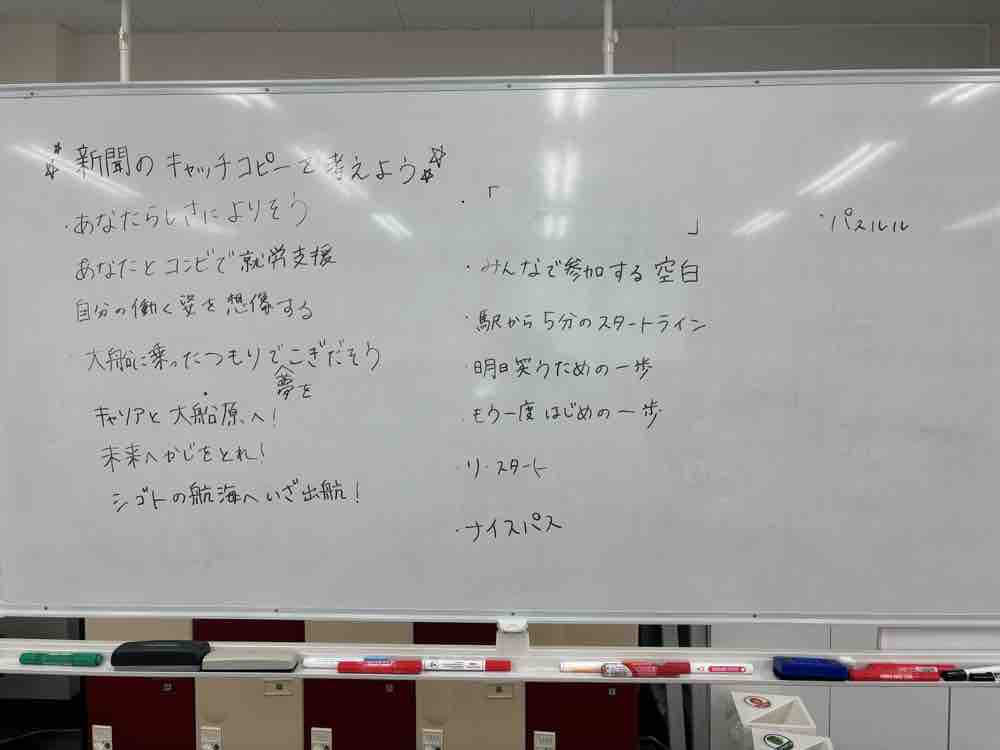 ☆新聞のキャッチコピーを考えよう☆
・あなたらしさによりそう
あなたとコンビで就労支援
自分の働く姿を想像する
大船に乗ったつもりでこぎだそう
夢を
キャリアと大船原へ!
未来へかじをとれ!
シゴトの航海へいざ出航!
・「
」
・みんなで参加する 空白
・駅から5分のスタートライン
・明日笑うための一歩
・もう一度はじめの一歩
・リ・スタート
・ナイスパス
・パスルル